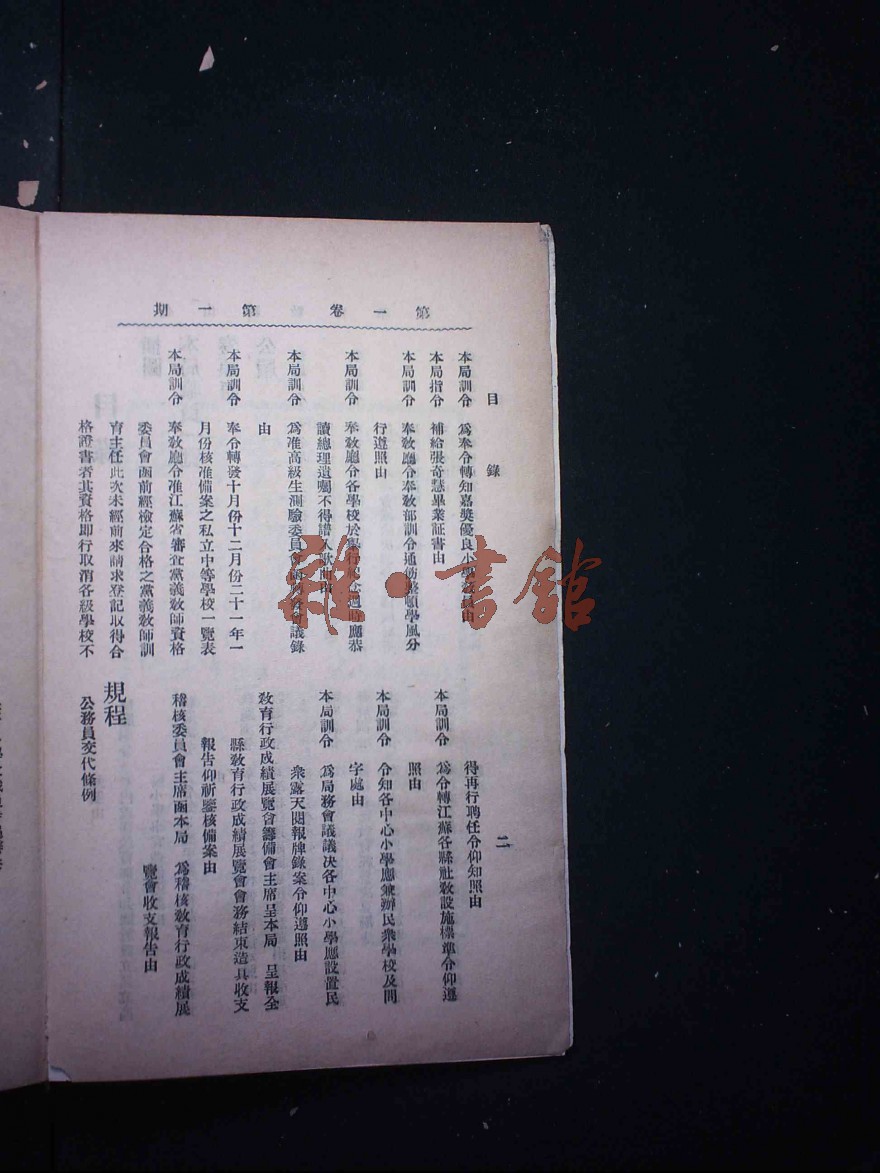 第一卷 第一期
目錄
二
本局訓令 為奉令轉知嘉獎優良小學教員由
本局指令 補給張奇慧畢業証書由
本局訓令 奉敎廳令奉敎部訓令通飭整頓學風分
行遵照由
本局訓令 奉敎廳令各學校於舉行紀念週時應恭
讀總理遺囑不得譜入歌曲由
本局訓令 為准高級生測驗委員會函轉會議錄
由
本局訓令 奉令轉發十月份十二月份二十一年一
月份核准備案之私立中等學校一覽表
本局訓令 奉敎廳令准江蘇省審查黨義敎師資格
委員會函前經檢定合格之黨義敎師訓
育主任此次未經前來請求登記取得合
格證書者其資格即行取消各級學校不
得再行聘任令仰知照由
本局訓令 為令轉江蘇各縣社敎設施標準令仰遵
照由
本局訓令 令知各中心小學應兼辦民衆學校及問
字處由
本局訓令 為局務會議議决各中心小學應設置民
衆露天閱報牌錄案令仰遵照由
敎育行政成績展覽會籌備會主席呈本局 呈報全
縣敎育行政成績展覽會會務結束造具收支
報告仰祈鑒核備案由
稽核委員會主席函本局 為稽核敎育行政成績展
覽會收支報告由
規程
公務員交代條例
雜·書館